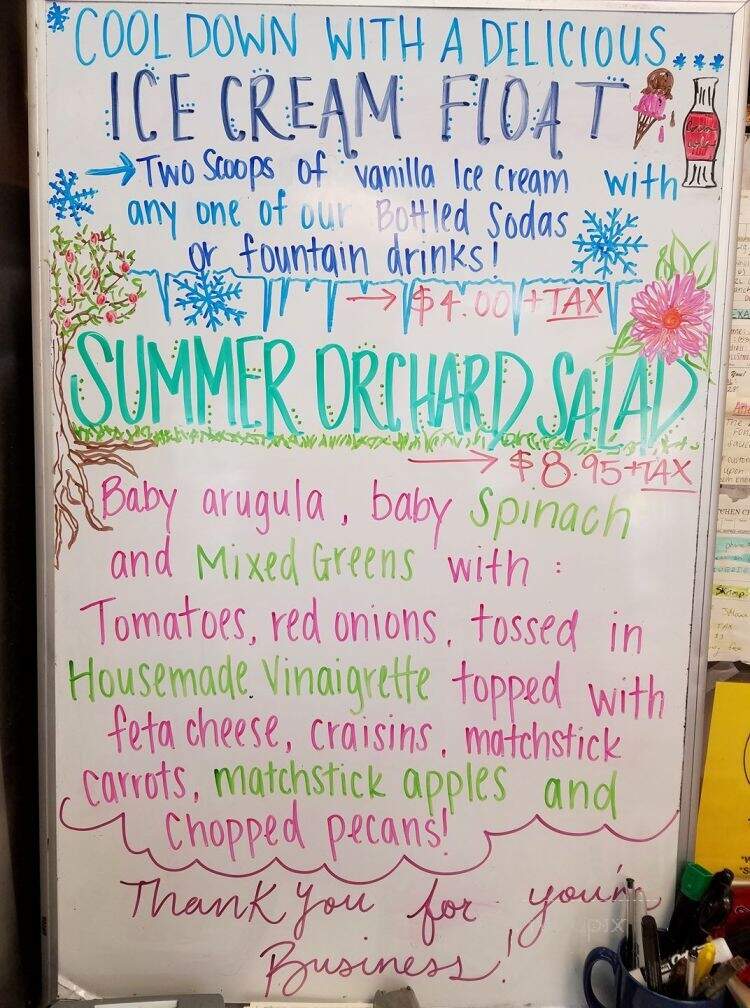 COOL DOWN WITH A DELICIOUS...
ICE CREAM FLOAT
→ Two Scoops of vanilla Ice cream with
any one of our Bottled Sodas
or fountain drinks!
→ $4.00 + TAX
SUMMER ORCHARD SALAD
→ $8.95 + TAX
Baby arugula, baby Spinach
and Mixed Greens with:
Tomatoes, red onions, tossed in
Housemade Vinaigrette topped with
feta cheese, craisins, matchstick
carrots, matchstick apples and
Chopped pecans!
Thank You for your
Business!